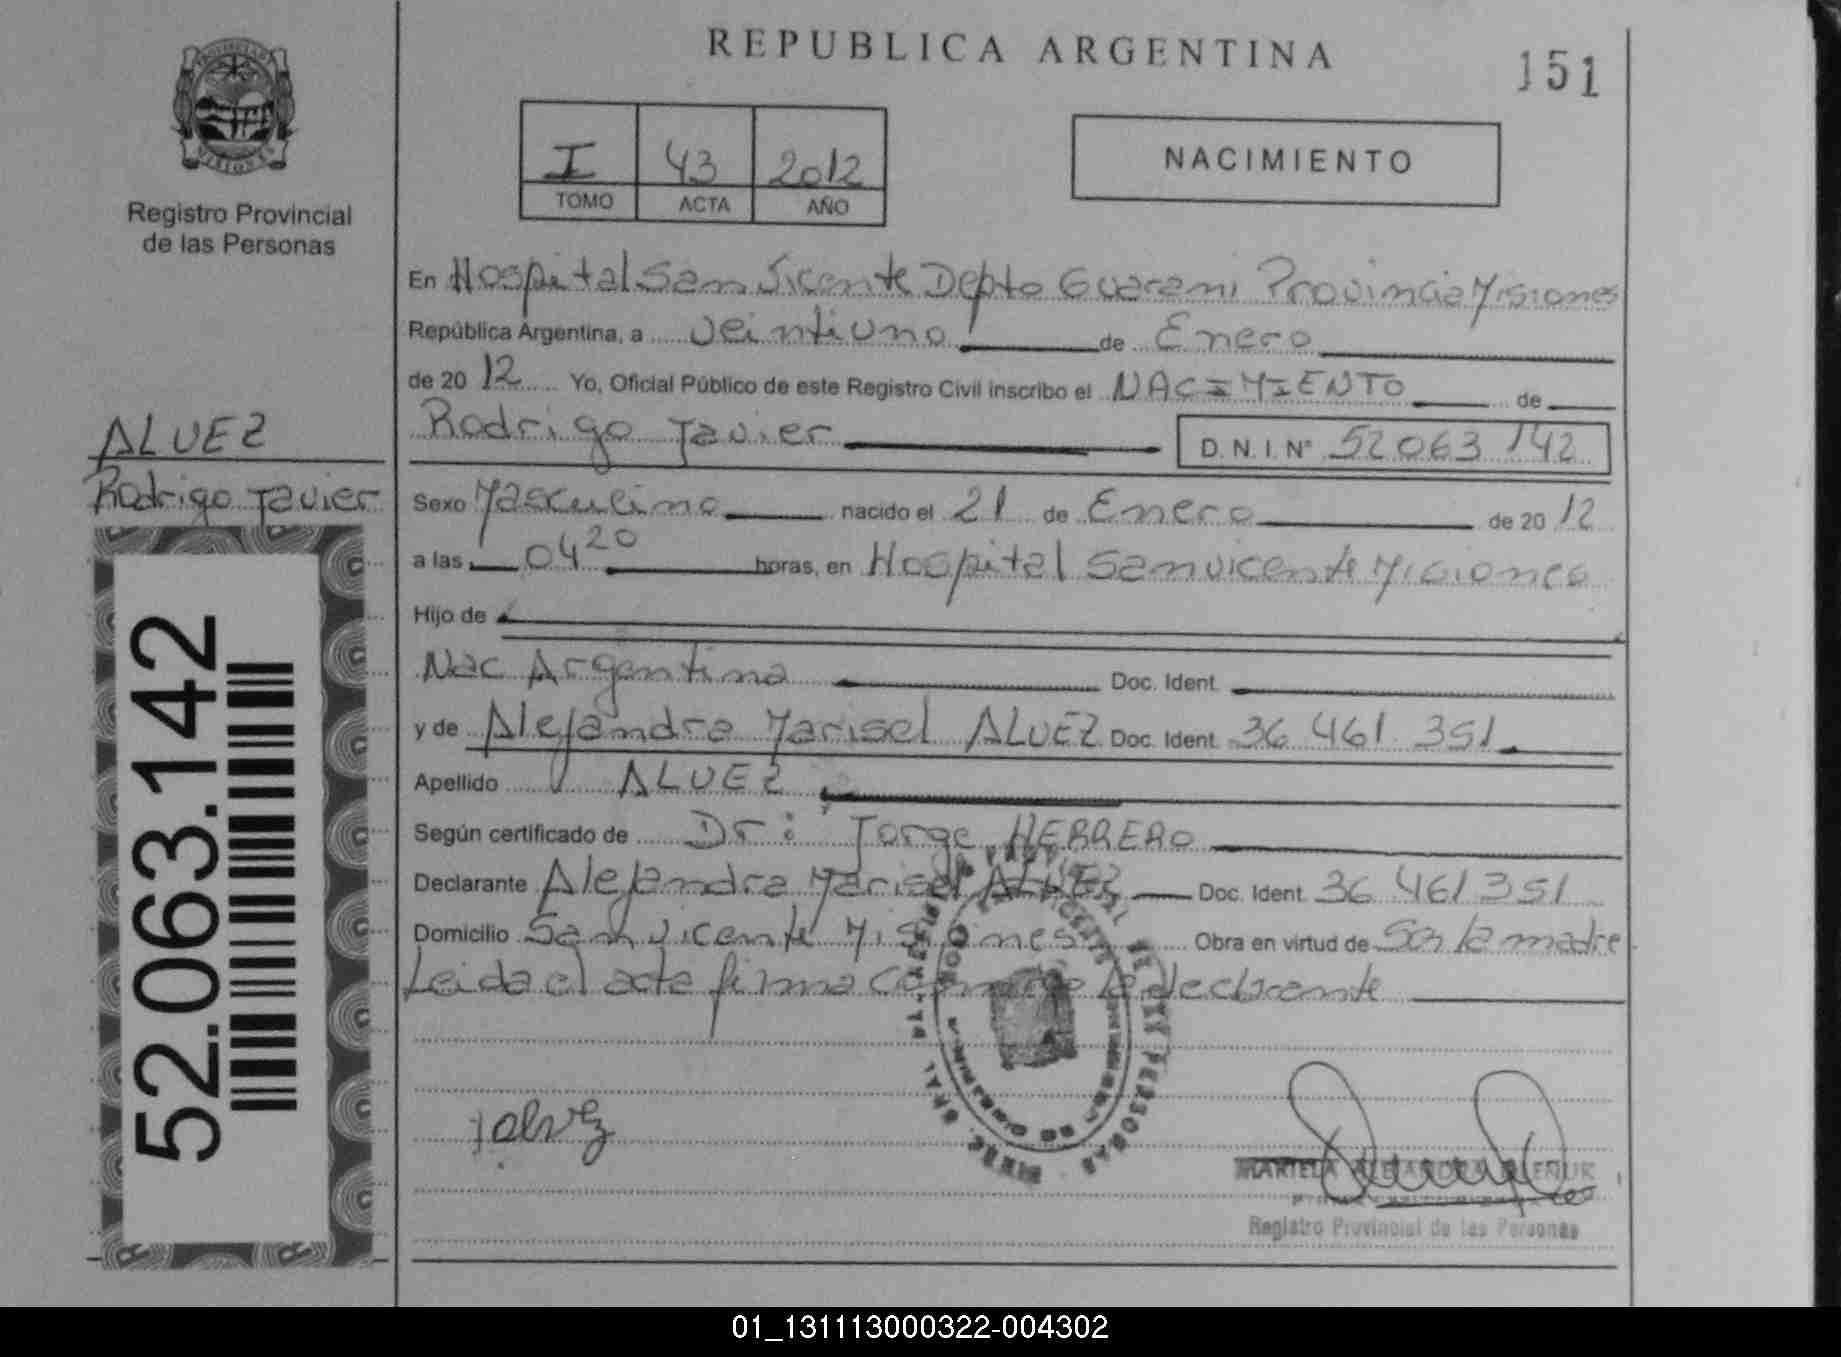 REPUBLICA ARGENTINA
151
PROVINCIA DE MISIONES
Registro Provincial
de las Personas
I 43 2012
TOMO ACTA AÑO
NACIMIENTO
En Hospital San Vicente Depto Guarani Provincia Misiones
República Argentina, a veintiuno de Enero
de 2012 Yo, Oficial Público de este Registro Civil inscribo el NACIMIENTO de
Rodrigo Javier D.N.I. Nº 52063142
ALVEZ
Rodrigo Javier
52.063.142
Sexo Masculino nacido el 21 de Enero de 2012
a las 04 20 horas, en Hospital San vicente Misiones
Hijo de
Nac Argentina Doc. Ident.
y de Alejandra Marisel ALVEZ Doc. Ident. 36 461 351
Apellido ALVEZ
Según certificado de Dr: Jorge HERRERO
Declarante Alejandra Marisel ALVEZ Doc. Ident. 36 461351
Domicilio San vicente Misiones Obra en virtud de Ser la madre
Leida el acta firma Conmigo la declarante
DE LAS PERSONAS
Registro Provincial de las Personas
01_131113000322-004302